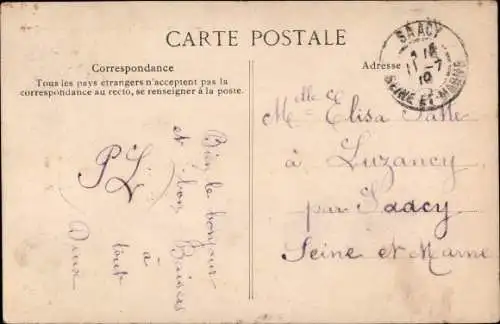 CARTE POSTALE
Correspondance
Tous les pays étrangers n'acceptent pas la
correspondance au recto, se renseigner à la poste.
Adresse
SAACY
11-7
10
SEINE-ET-MARNE
Melle Elisa
à Luzancy
par Saacy
Seine et Marne
Bien le bonjour
et bon
Baiser
à
tout
Deux
PL